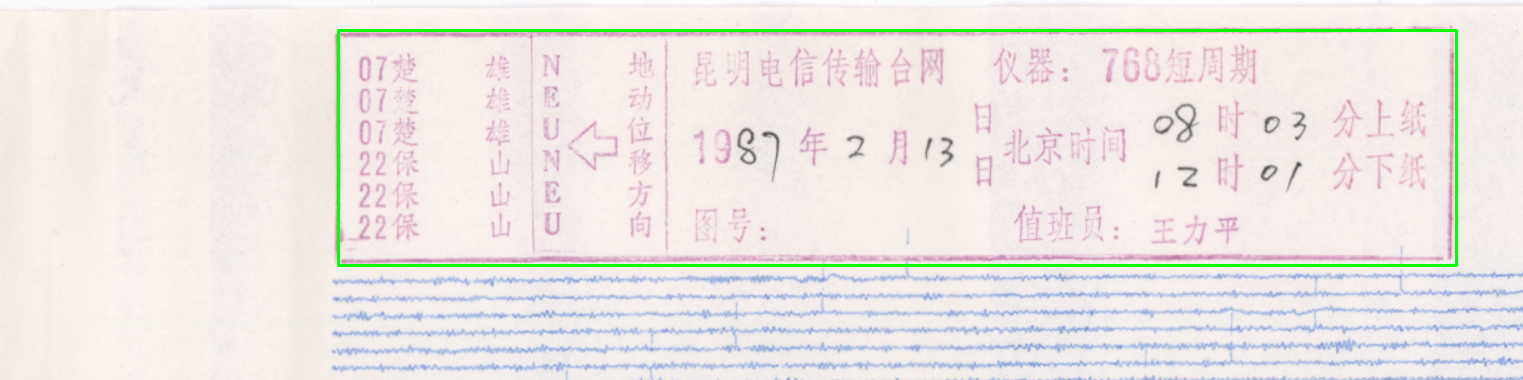 07楚 雄 N 地
07楚 雄 E 动
07楚 雄 U 位
22保 山 N 移
22保 山 E 方
22保 山 U 向
昆明电信传输台网 仪器：768短周期
1987年2月13日 北京时间 08时03分上纸
日 12时01分下纸
图号： 值班员：王力平